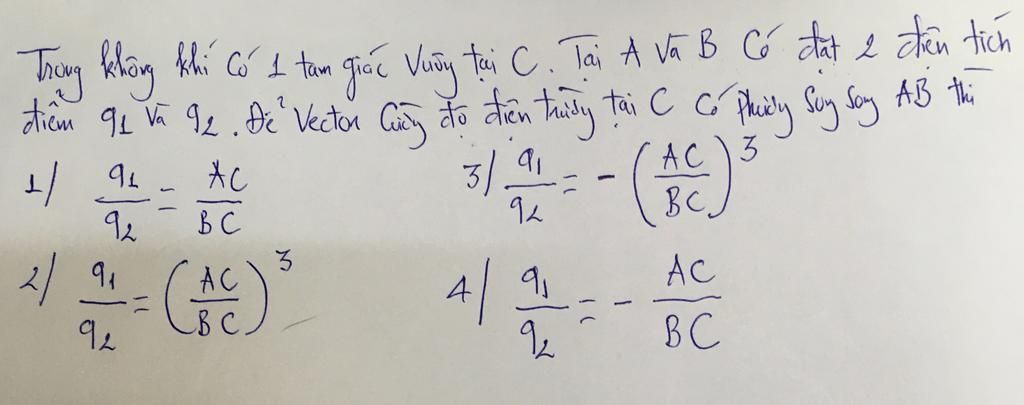 Trong không khí có 1 tam giác vuông tại C. Tại A và B có đặt 2 điện tích
điểm q1 và q2. Để Vector Cường độ điện trường tại C có phương song song AB thì
1/ q1/q2 = AC/BC 3/ q1/q2 = - (AC/BC)^3
2/ q1/q2 = (AC/BC)^3 4/ q1/q2 = - AC/BC